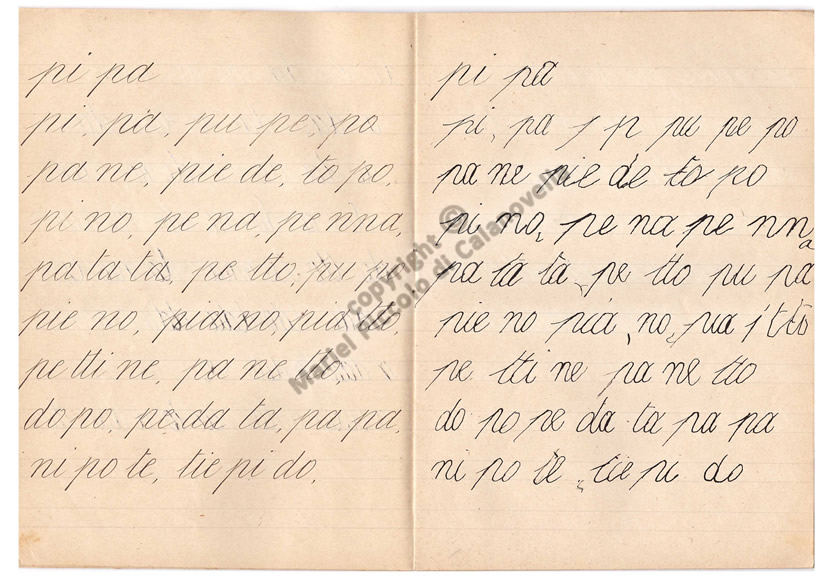 pi pa
pi, pa, pu pe, po
pa ne, pie de, to po,
pi no, pe na, pe nna,
pa ta ta, pe tto, pu pa
pie no, pia no, pia tto,
pe tti ne, pa ne tto
do po, pe da ta, pa pa,
ni po te, tie pi do,
pi pa
pi, pa pu pe po
pa ne pie de to po
pi no, pe na pe nna
pa ta ta, pe tto pu pa
pie no pia, no, pia tto
pe tti ne pa ne tto
do po pe da ta pa pa
ni po te, tie pi do
copyright ©
Mariel Piccolo di Calanovella